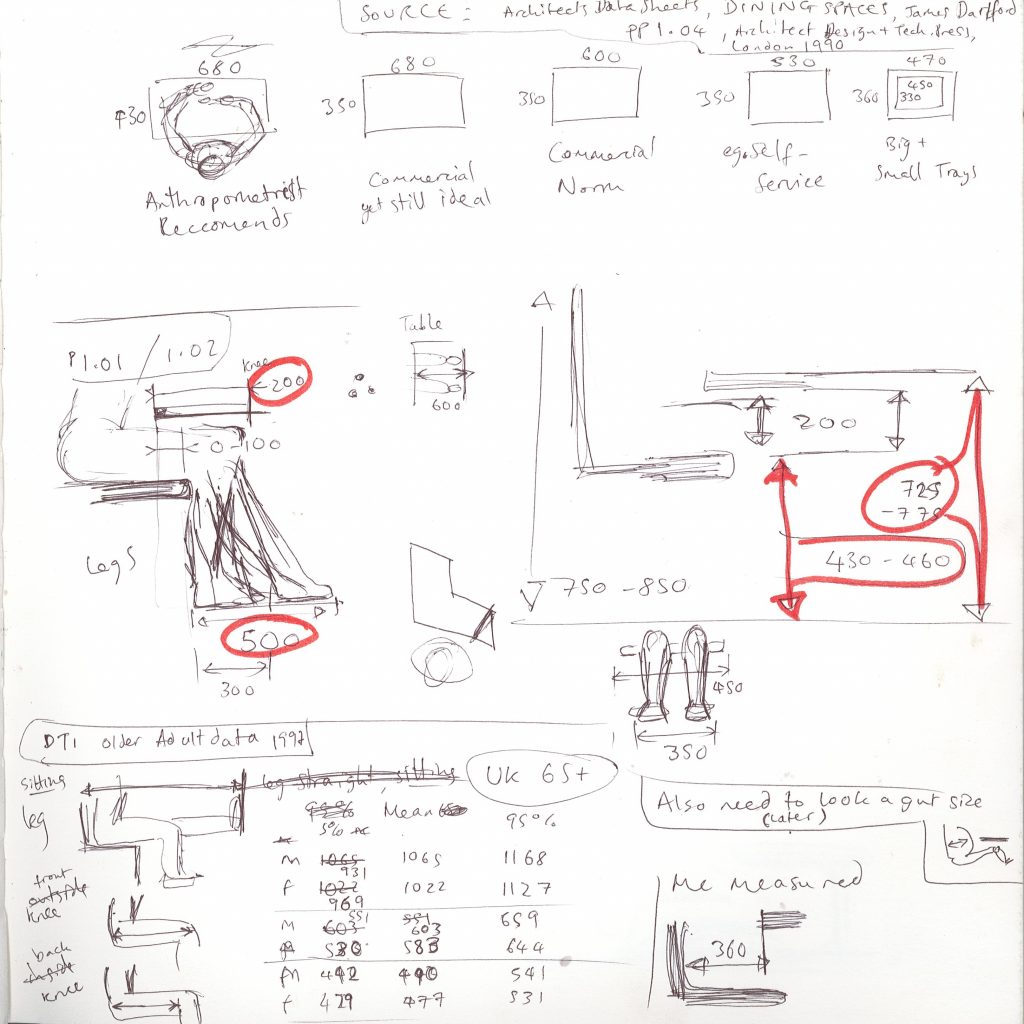 SOURCE: Architects Data Sheets, DINING SPACES, James Dartford
PP 1.04, Architect Design + Tech. Press,
London 1990
680
430
Anthropometrist
Reccomends
680
350
Commercial
yet still ideal
600
350
Commercial
Norm
530
350
eg. Self-
Service
470
360
450
330
Big +
Small Trays
P1.01 / 1.02
Knee
200
0-100
Legs
500
300
Table
600
200
725
-775
430-460
750-850
450
350
DTI older Adult data 1997
leg straight, sitting
UK 65+
sitting
leg
5%
Mean
95%
M 1065 931 1065 1168
F 1022 969 1022 1127
front
outside
Knee
M 603 551 551 603 659
530 583 644
back
inside
knee
M 442 490 541
f 429 477 531
Also need to look a gut size
(later)
Me measured
360